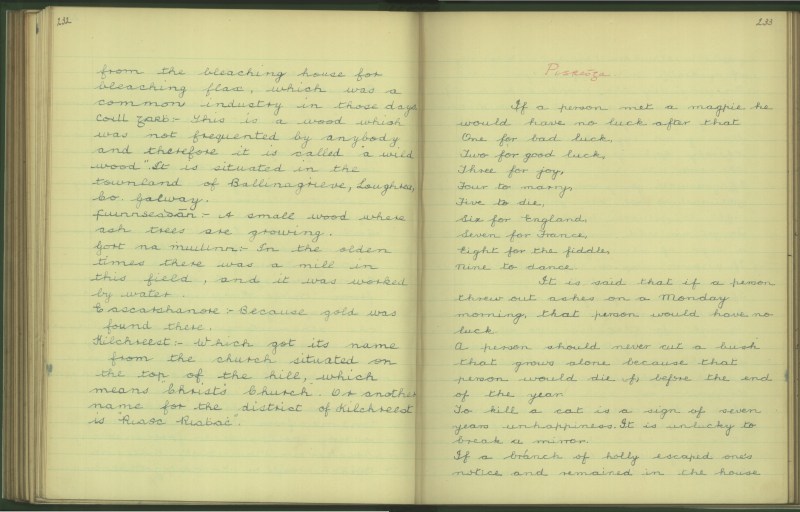 232
from the bleaching house for
bleaching flax, which was a
common industry in those days
Coill :- This is a wood which
was not frequented by anybody
and therefore it is called "a wild
wood". It is situated in the
townland of Ballinagrieve, Loughrea,
Co. Galway.
Fuinnseoán :- A small wood where
ash trees are growing.
Gort na muilinn:- In the olden
times there was a mill in
this field, and it was worked
by water.
:- Because gold was
found there.
Kilchreest:- Which got its name
from the church situated on
the top of the hill, which
means "Christ's Church. Or another
name for the district of Kilchreest
is "Riabac".
233
If a person met a magpie he
would have no luck after that
One for bad luck,
Two for good luck,
Three for joy,
Four to marry,
Five to die,
Six for England,
Seven for France,
Eight for the fiddle,
Nine to dance
It is said that if a person
threw out ashes on a Monday
morning, that person would have no
luck
A person should never cut a bush
that grows alone because that
person would die before the end
of the year
To kill a cat is a sign of seven
years unhappiness. It is unlucky to
break a mirror.
If a branch of holly escaped one's
notice and remained in the house